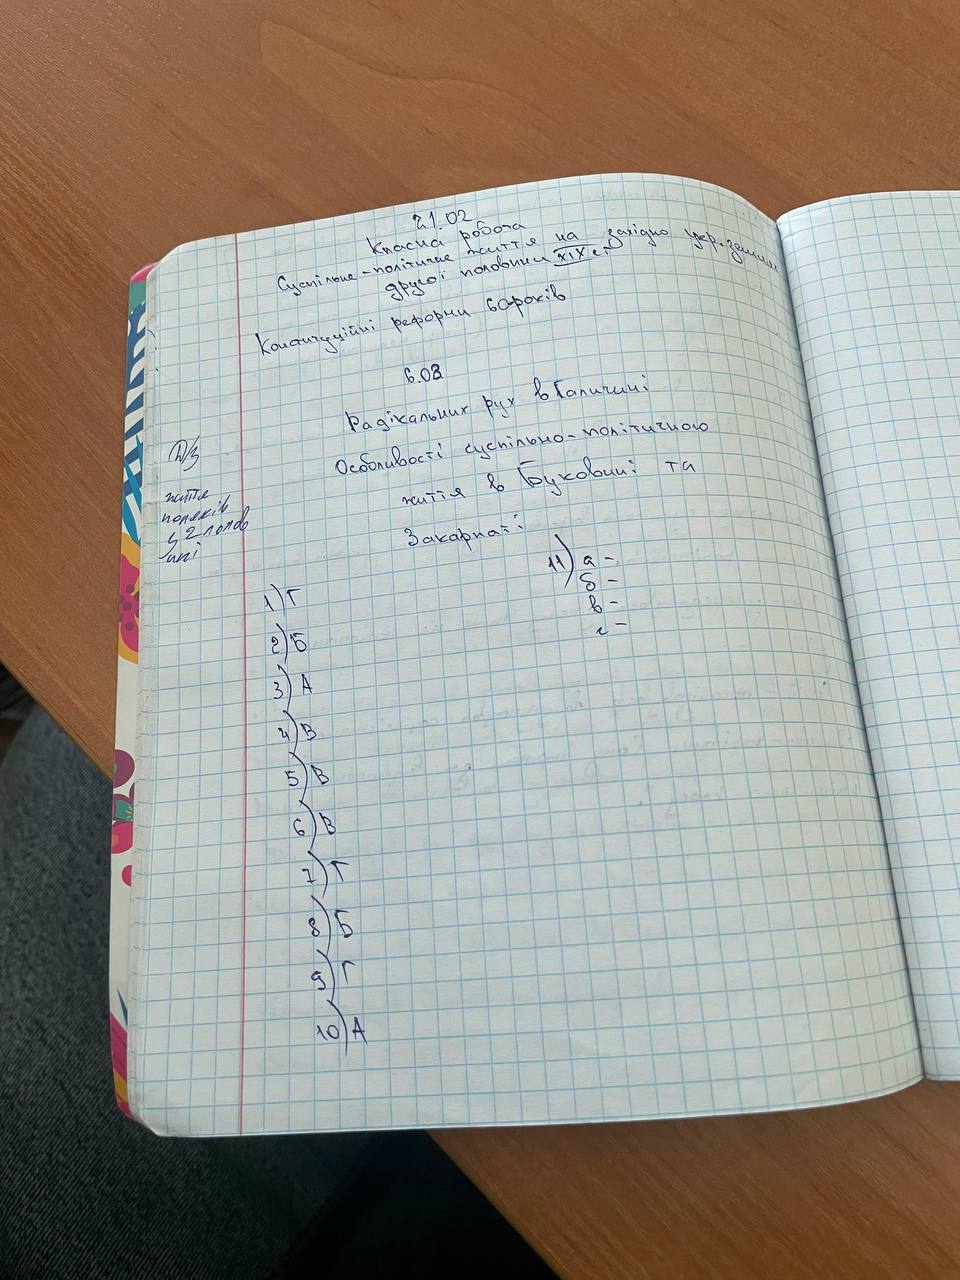 21.02
Класна робота
Суспільне-політичне життя на західно укр. землях
другої половини XIX ст
Конституційні реформи 60 років
6.03
Радікальних рух в Галичині
Особливості суспільно-політичного
життя в Буковині та
Закарпаті
Д/з
життя
поляків
у 2 полов
ині
1) Г
2) Б
3) А
4) В
5) В
6) В
7) Г
8) Б
9) Г
10) А
11) а -
б -
в -
г -